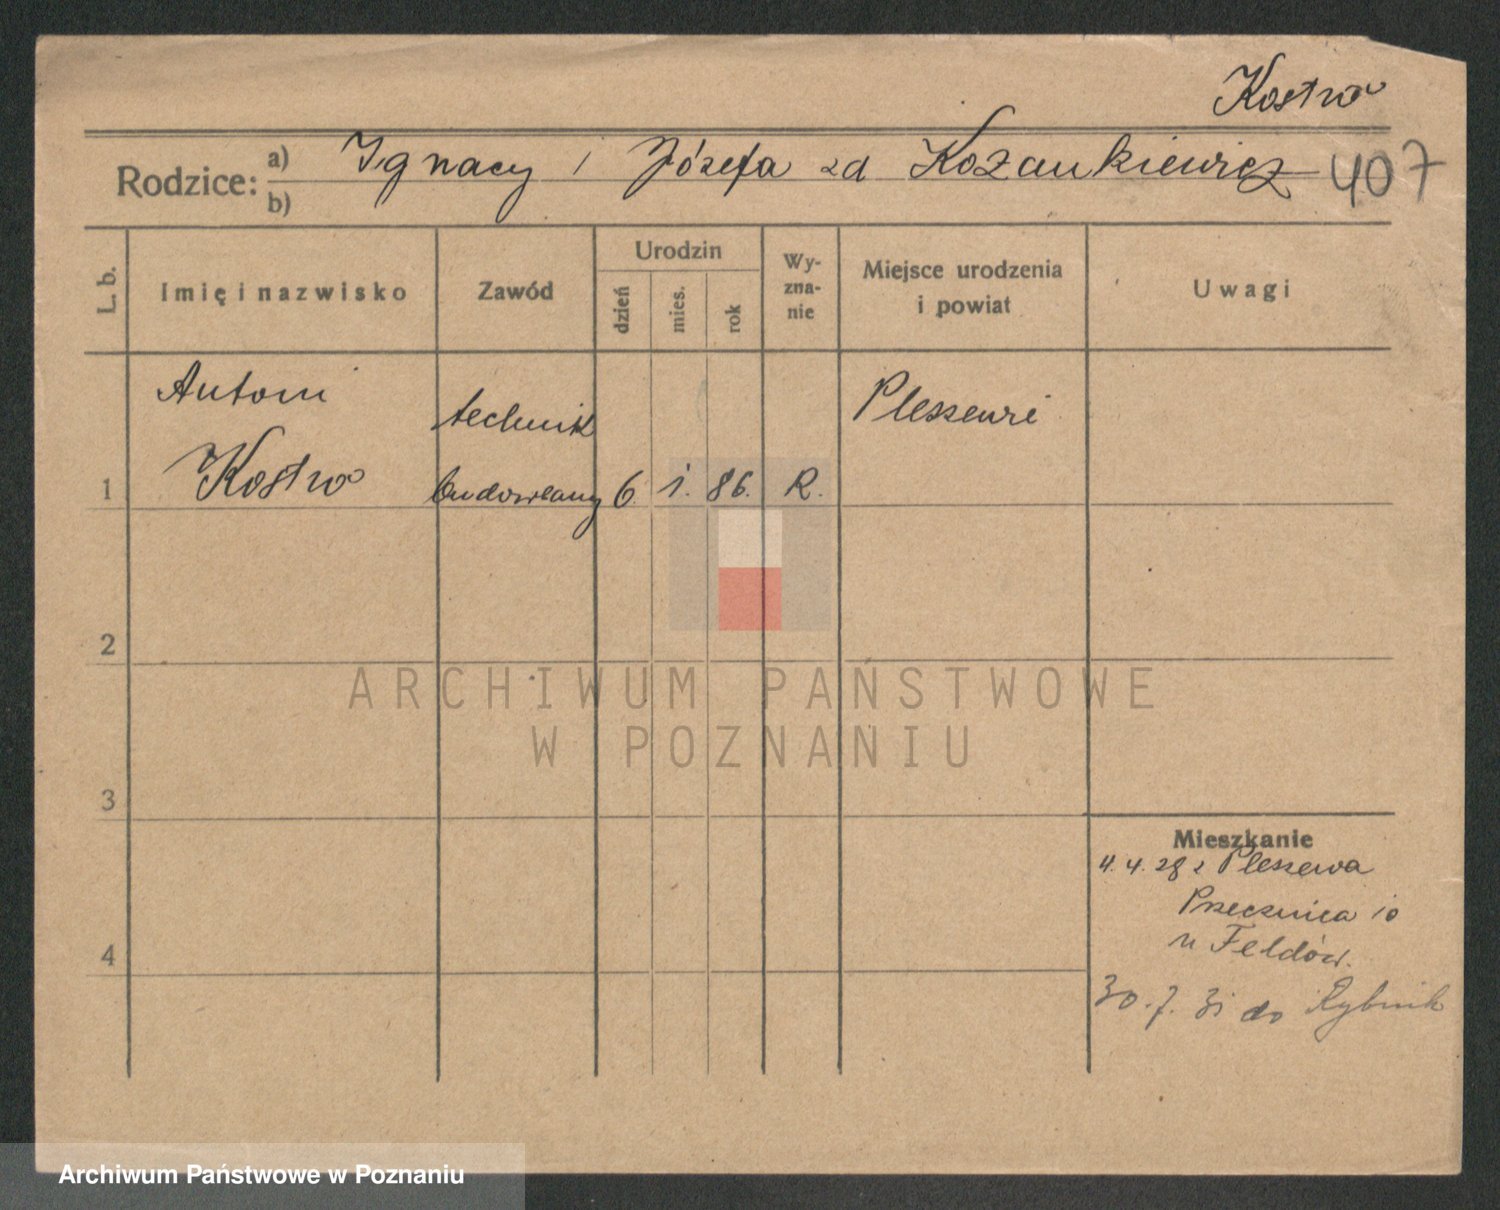 Kostro
Rodzice: a) Ignacy i Józefa zd Kozankiewicz 407
b)
L. b.
Imię i nazwisko
Zawód
Urodzin
dzień
mies.
rok
Wy-
zna-
nie
Miejsce urodzenia
i powiat
Uwagi
1
Antoni
Kostro
technik
budowlany
6. 1. 86.
R.
Pleszewie
2
3
4
Mieszkanie
4.4.28 z Pleszewa
10
u
30.7.31 do Rybnik
ARCHIWUM PAŃSTWOWE
W POZNANIU
Archiwum Państwowe w Poznaniu